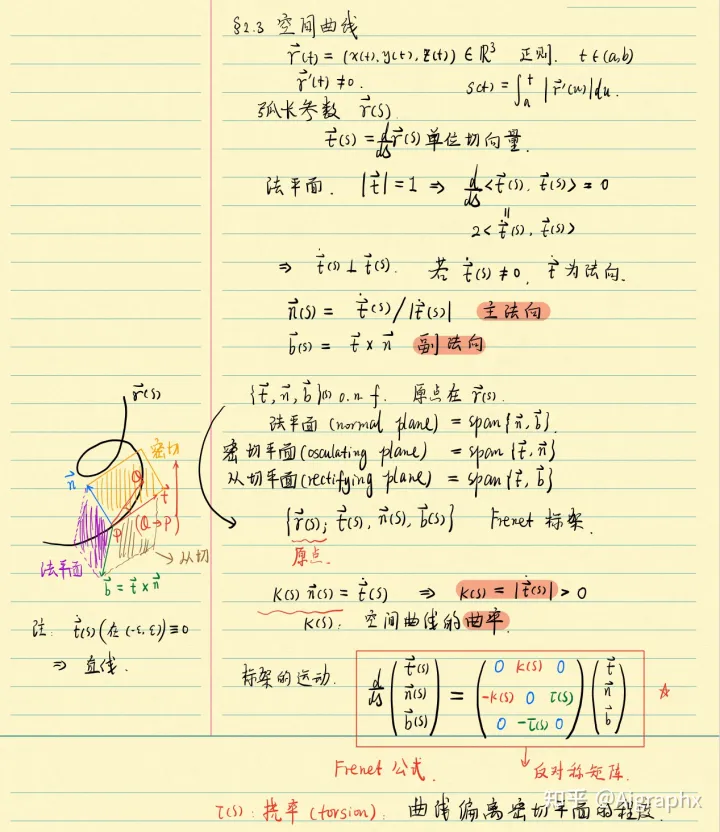 §2.3 空间曲线
r⃗(t) = (x(t), y(t), z(t)) ∈ ℝ³ 正则. t∈(a,b)
r⃗'(t) ≠ 0. s(t) = ∫ₐᵗ |r⃗'(u)| du.
弧长参数 r⃗(s).
t⃗(s) = d/ds r⃗(s) 单位切向量.
法平面. |t⃗| = 1 ⇒ d/ds <t⃗(s), t⃗(s)> = 0
||
2<ṫ⃗(s), t⃗(s)>
⇒ ṫ⃗(s) ⊥ t⃗(s). 若 ṫ⃗(s) ≠ 0, ṫ⃗ 为法向.
n⃗(s) = ṫ⃗(s) / |ṫ⃗(s)| 主法向
b⃗(s) = t⃗ × n⃗ 副法向
{t⃗, n⃗, b⃗}(s) o.n.f. 原点在 r⃗(s).
法平面 (normal plane) = span{n⃗, b⃗}.
密切平面 (osculating plane) = span{t⃗, n⃗}
从切平面 (rectifying plane) = span{t⃗, b⃗}
{r⃗(s); t⃗(s), n⃗(s), b⃗(s)} Frenet 标架.
原点
r⃗(s)
密切
n⃗
Q
t⃗
P
(Q→P)
从切
法平面
b⃗ = t⃗ × n⃗
注: ṫ⃗(s) (在(-ε, ε)) ≡ 0
⇒ 直线.
κ(s) n⃗(s) = ṫ⃗(s) ⇒ κ(s) = |ṫ⃗(s)| > 0
κ(s): 空间曲线的曲率.
标架的运动. d/ds (t⃗(s) n⃗(s) b⃗(s)) = (0 κ(s) 0
-κ(s) 0 τ(s)
0 -τ(s) 0) (t⃗ n⃗ b⃗) ☆
Frenet 公式. 反对称矩阵.
τ(s): 挠率 (torsion): 曲线偏离密切平面的程度.
知乎 @Aigraphx